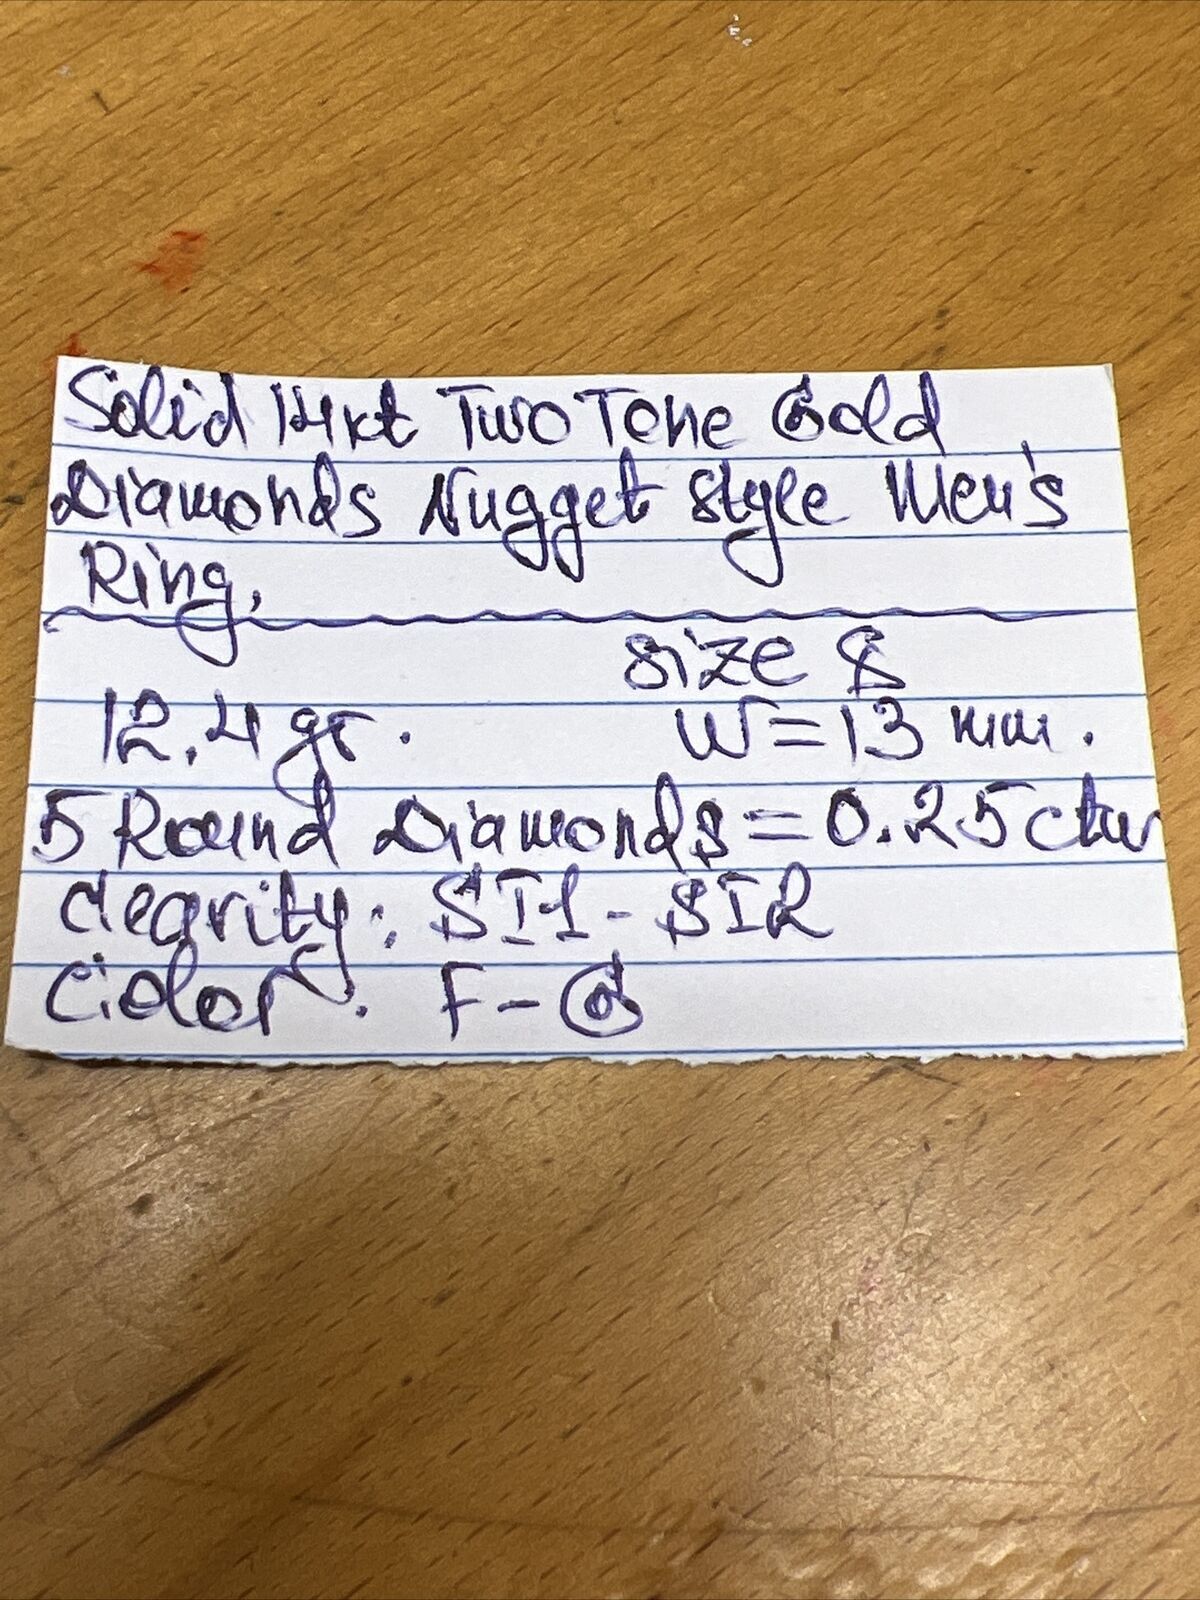 Solid 14kt Two Tone Gold
Diamonds Nugget Style Men's
Ring.
size 8
12.4 gr. W=13 mm.
5 Round Diamonds = 0.25 ctw
Clearity: SI1 - SI2
Color. F-G